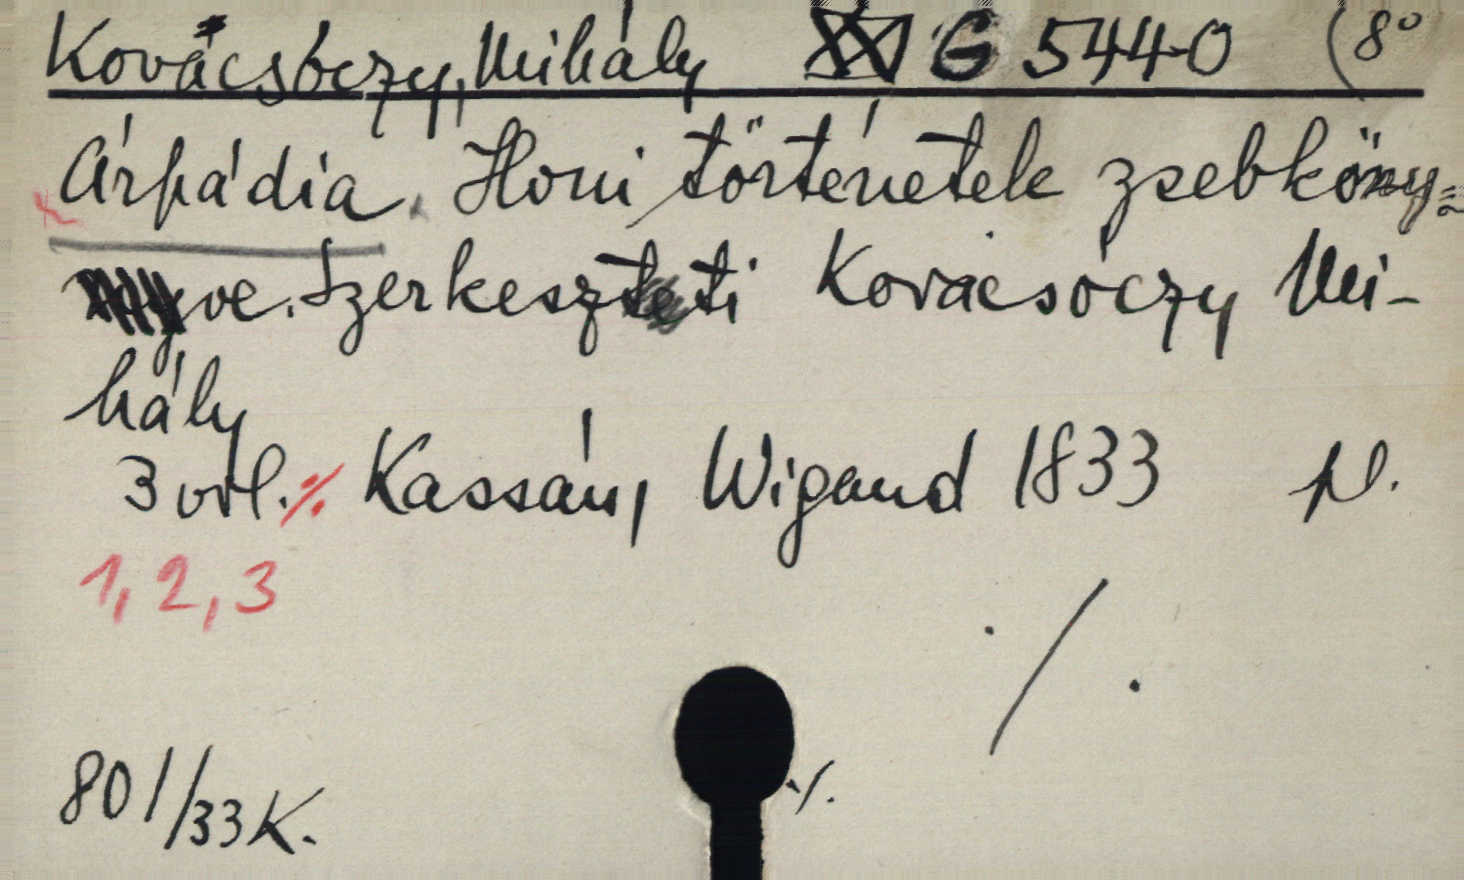 Kovácsóczy, Mihály G 5440 (8°
Árpádia. Honi történetek zsebköny=
ve. Szerkeszteti Kovácsóczy Mi-
hály
3 vol. ·/. Kassán, Wigand 1833 pl.
1, 2, 3
·/.
801/33 K. ·/.